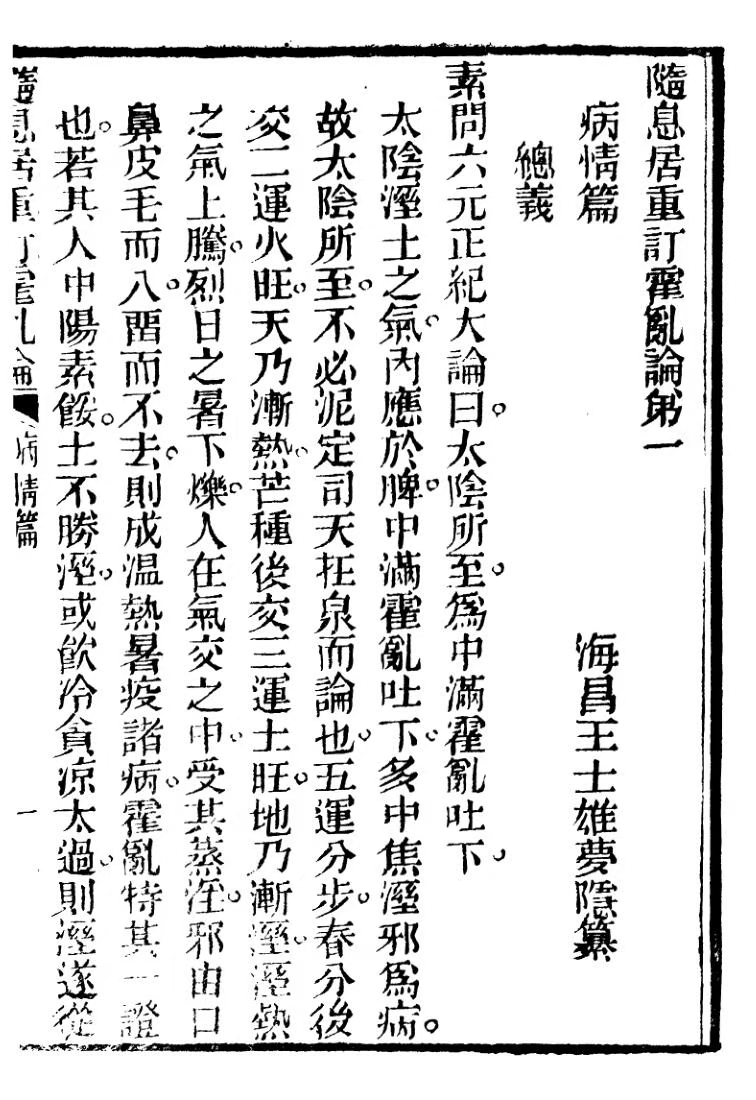 隨息居重訂霍亂論第一
病情篇　海昌王士雄夢隱纂
總義
素問六元正紀大論曰。太陰所至。爲中滿霍亂吐下。
太陰溼土之氣。內應於脾。中滿霍亂吐下。多中焦溼邪爲病。
故太陰所至。不必泥定司天在泉而論也。五運分步。春分後
交二運火旺。天乃漸熱。芒種後交三運土旺。地乃漸溼。溼熱
之氣上騰。烈日之暑下爍。人在氣交之中。受其蒸淫。邪由口
鼻皮毛而入。畱而不去。則成溫熱暑疫諸病。霍亂特其一證
也。若其人中陽素餒。土不勝溼。或飮冷貪凉太過。則溼遂從
隨息居重訂霍亂論　病情篇　一